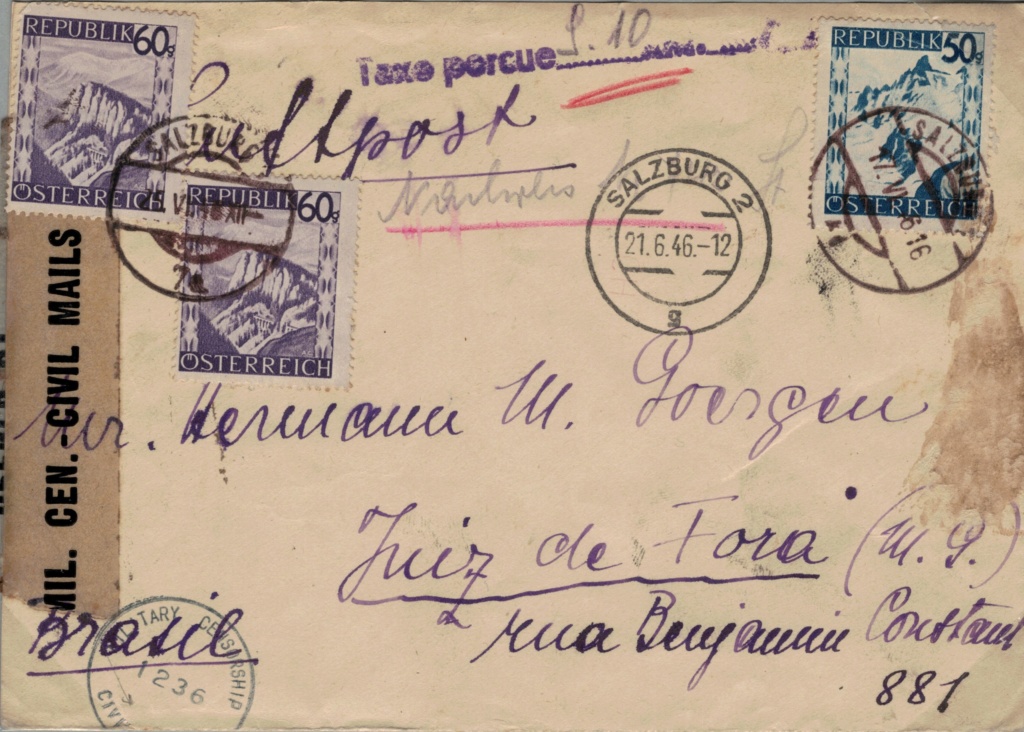 REPUBLIK 60g
ÖSTERREICH
Taxe percue S. 10
REPUBLIK 50g
ÖSTERREICH
Luftpost
SALZBURG
REPUBLIK 60g
ÖSTERREICH
SALZBURG 2
21.6.46.-12
a
SALZBURG
MIL. CEN.-CIVIL MAILS
Mr. Hermann M. Goergen
Juiz de Fora (M. G.)
rua Benjamin Constant
881
Brasil
TARY CENSORSHIP
1236
CIV